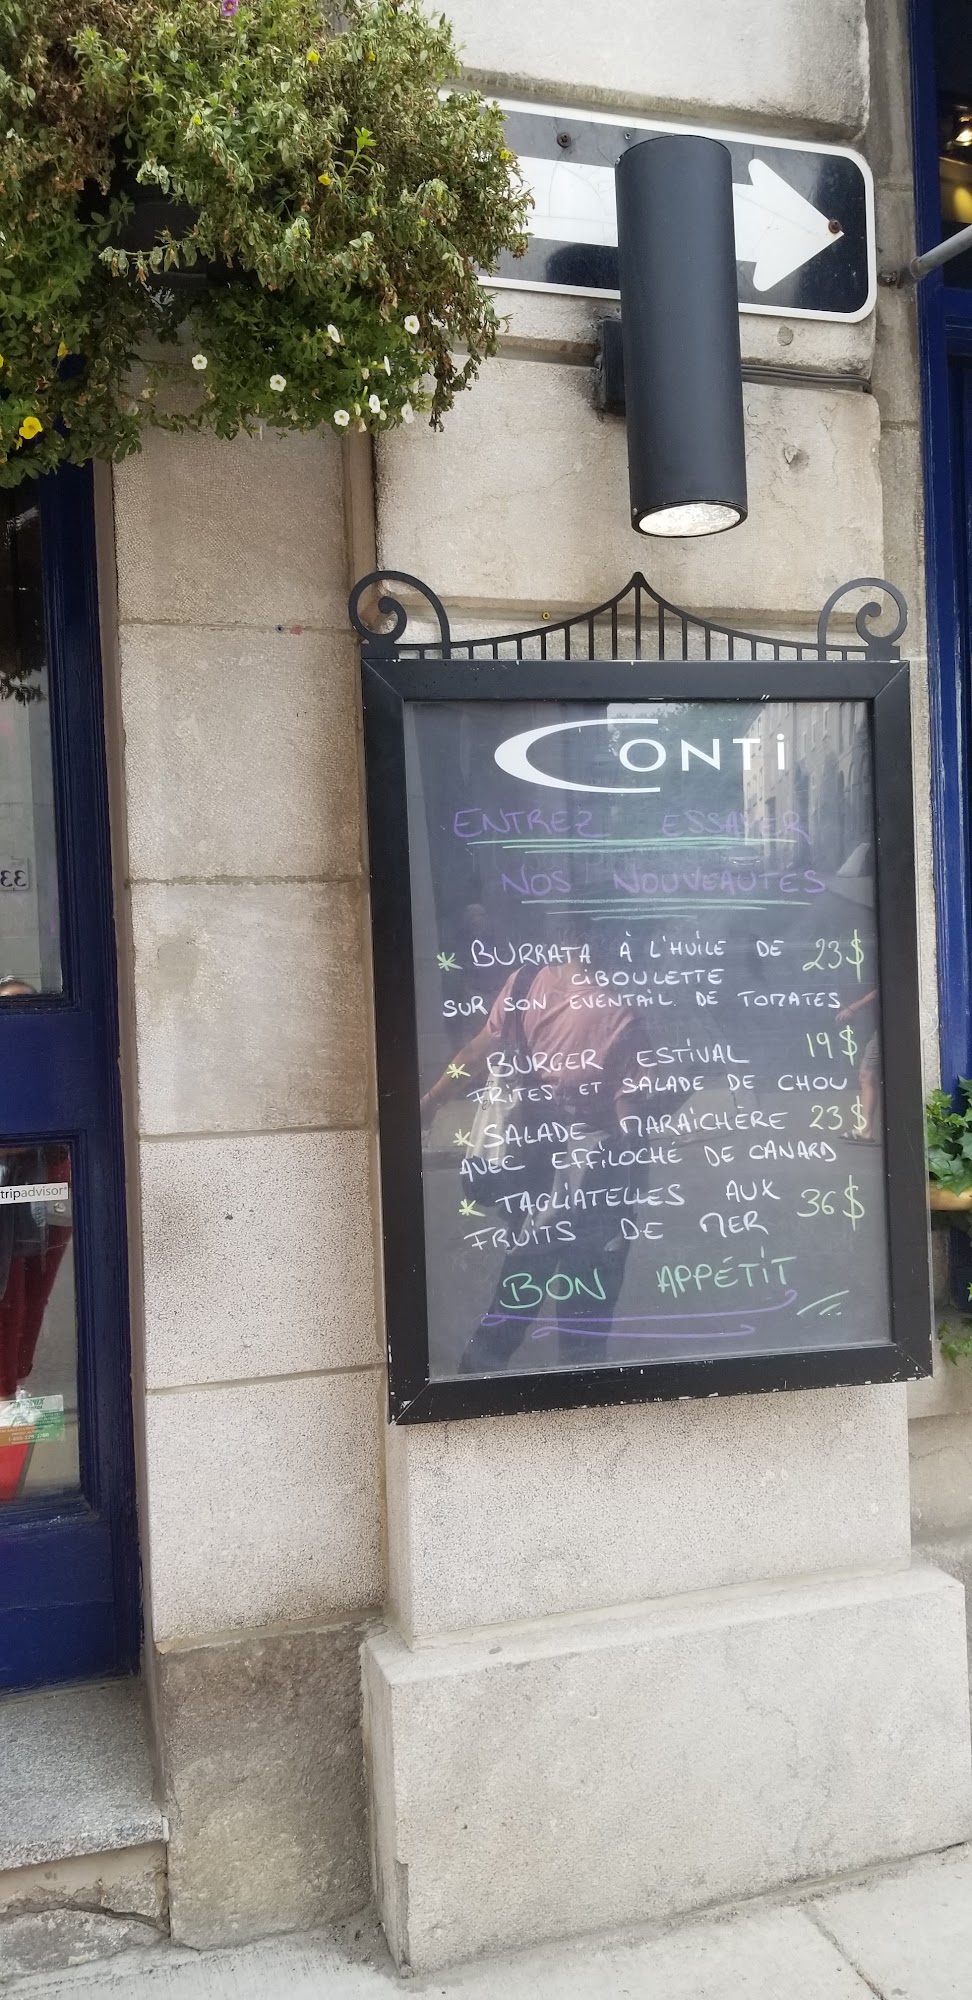 CONTi
ENTREZ ESSAYER
NOS NOUVEAUTÉS
* BURRATA À L'HUILE DE 23$
CIBOULETTE
SUR SON EVENTAIL DE TOMATES
* BURGER ESTIVAL 19$
FRITES ET SALADE DE CHOU
* SALADE MARAICHÈRE 23$
AVEC EFFILOCHÉ DE CANARD
* TAGLIATELLES AUX 36$
FRUITS DE MER
BON APPÉTIT
tripadvisor